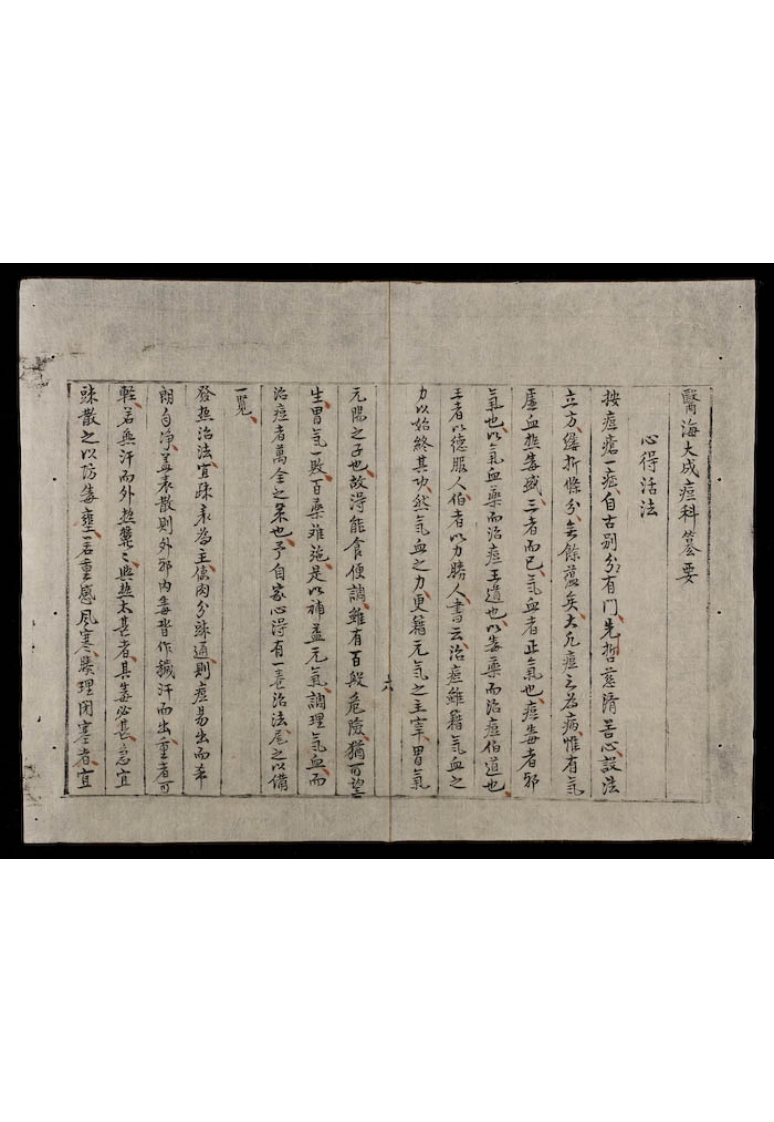 醫海大成痘科纂要
心得活法
按痘瘡一症自古別分有門先哲慈濟苦心設法
立方縷析條分無餘蘊矣大凡痘之為病惟有氣
虛血熱毒盛三者而已氣血者正氣也痘毒者邪
氣也以氣血藥而治痘王道也以毒藥而治痘伯道也
王者以德服人伯者以力勝人書云治痘雖籍氣血之
力以始終其功然氣血之力更籍元氣之主宰胃氣
六
元陽之子也故得能食便調雖有百般危險猶可望
生胃氣一敗百藥难施是以補益元氣調理氣血而
治痘者萬全之策也予自家心得有一善治法尾之以備
一覽
發熱治法宜疎表為主使肉分疎通則痘易出而希
朗自净盖表散則外邪內毒皆作撼汗而出重者可
軽若無汗而外熱蒸〻與熱太甚者其毒必甚急宜
疎散之以防毒壅若重感風寒腠理閉塞者宜